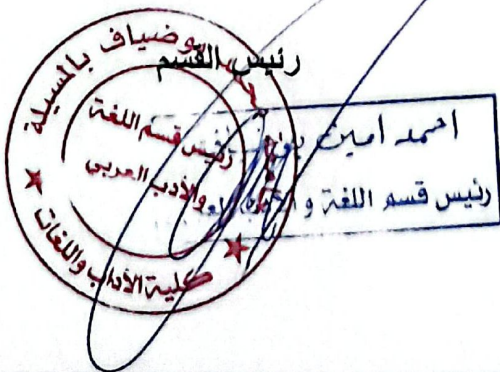 رئيس القسم
بوضياف بالمسيلة
رئيس قسم اللغة
والأدب العربي
كلية الآداب واللغات
احمد امين
رئيس قسم اللغة و